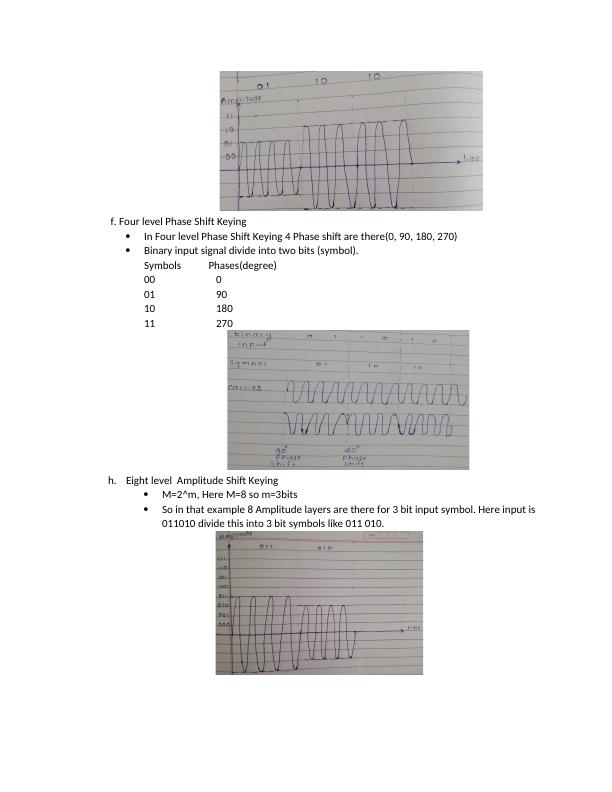 01 10 10
Amplitude
11
10
01
00
time
f. Four level Phase Shift Keying
• In Four level Phase Shift Keying 4 Phase shift are there(0, 90, 180, 270)
• Binary input signal divide into two bits (symbol).
Symbols Phases(degree)
00 0
01 90
10 180
11 270
binary 0 1 1 0 1 0
input
symbol 01 10 10
carrier
90° 180°
Phase Phase
Shift Shift
h. Eight level Amplitude Shift Keying
• M=2^m, Here M=8 so m=3bits
• So in that example 8 Amplitude layers are there for 3 bit input symbol. Here input is
011010 divide this into 3 bit symbols like 011 010.
Amplitude
011 010
111
110
101
100
011
010
001
000
time